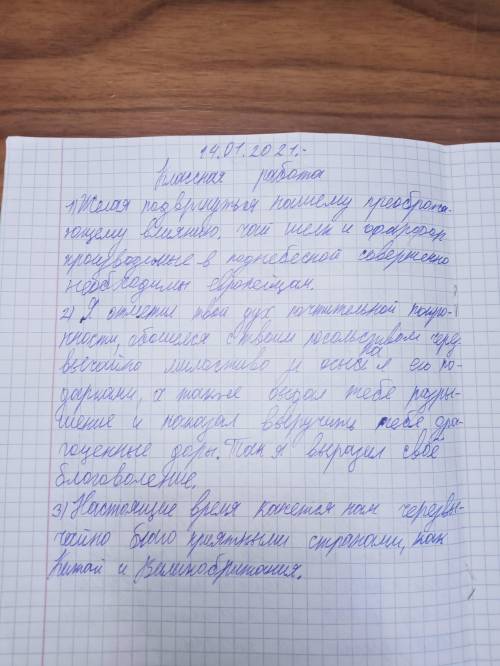 14.01.2021.
Классная работа
1) Желая подвергнуться нашему преобража-
ющему влиянию. чаи шелк и фарфор
производимые в поднебесной совершенно
необходимы европейцам.
2) Я отметил твой дух почтительной покор-
ности, обошелся с твоим посольством чрез-
вычайно милостиво и осыпал его по-
дарками, а также выдал тебе разре-
шение и показал выручить тебе дра-
гоценные дары. Так я выразил своё
благоволение.
3) Настоящие время кажется нам черезвы-
чайно благо приятными странами, как
Китай и Великобритания.